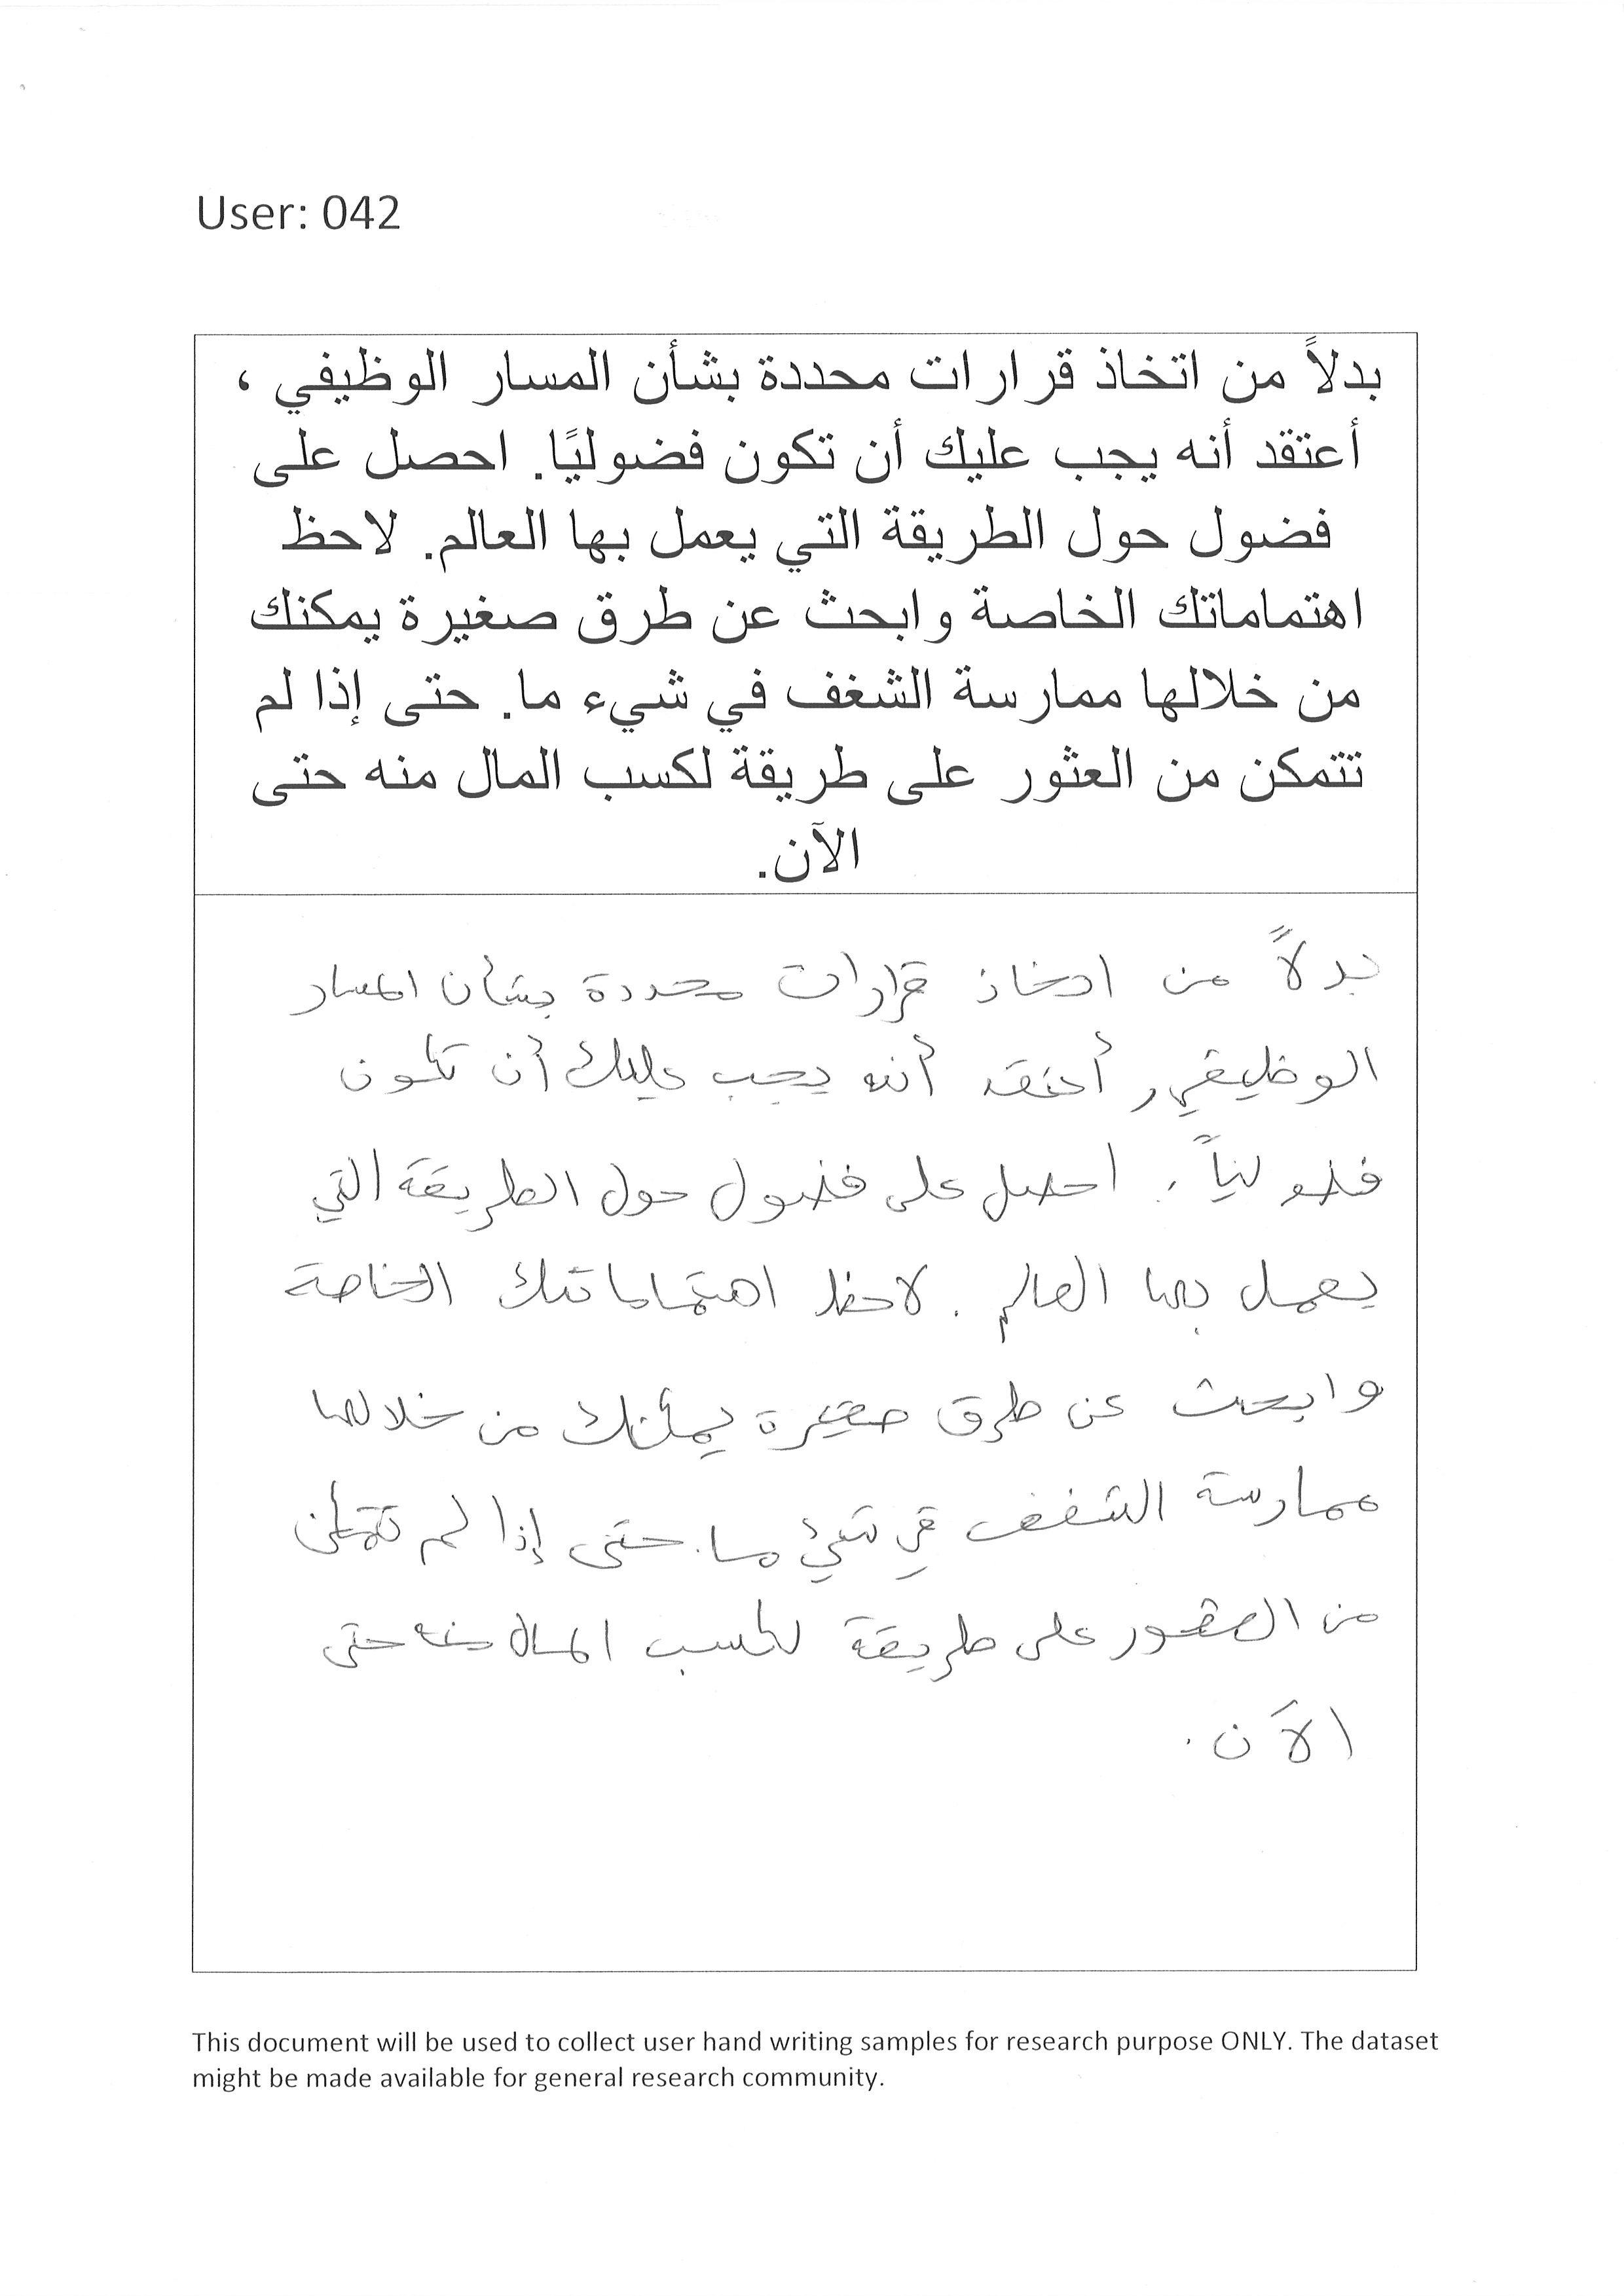 User: 042
بدلاً من اتخاذ قرارات محددة بشأن المسار الوظيفي ،
أعتقد أنه يجب عليك أن تكون فضوليًا. احصل على
فضول حول الطريقة التي يعمل بها العالم. لاحظ
اهتماماتك الخاصة وابحث عن طرق صغيرة يمكنك
من خلالها ممارسة الشغف في شيء ما. حتى إذا لم
تتمكن من العثور على طريقة لكسب المال منه حتى
الآن.
بدلاً من اتخاذ قرارات محددة بشأن المسار
الوظيفي, أعتقد أنه يجب عليك أن تكون
فضولياً. احصل على فضول حول الطريقة التي
يعمل بها العالم. لاحظ اهتماماتك الخاصة
وابحث عن طرق صغيرة يمكنك من خلالها
ممارسة الشغف في شيء ما. حتى إذا لم تتمكن
من العثور على طريقة لكسب المال منه حتى
الآن.
This document will be used to collect user hand writing samples for research purpose ONLY. The dataset
might be made available for general research community.